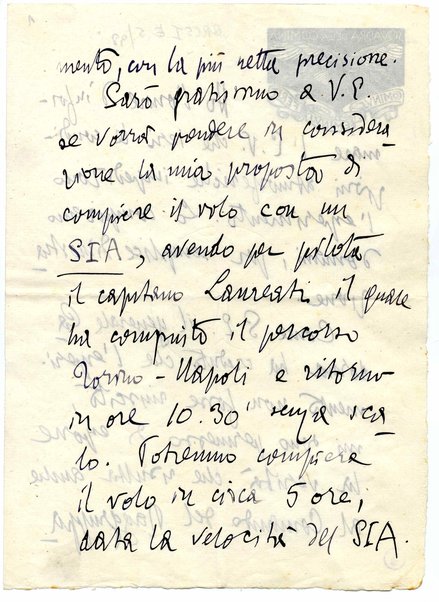 mento, con la più netta precisione.
Sarò gratissimo a V.E.
se vorrà prendere in considera
zione la mia proposta di
compiere il volo con un
SIA, avendo per pilota
il capitano Laureati il quale
ha compiuto il percorso
Torino-Napoli e ritorno
in ore 10.30" senza sca
lo. Potremo compiere
il volo in circa 5 ore,
data la velocità del SIA.